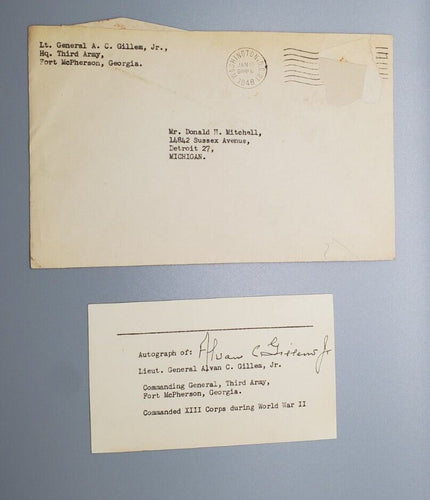 Lt. General A. C. Gillem, Jr.,
Hq. Third Army,
Fort McPherson, Georgia.
WASHINGTON
JAN
1948
Mr. Donald H. Mitchell,
14842 Sussex Avenue,
Detroit 27,
MICHIGAN.
Autograph of: Alvan C Gillem Jr
Lieut. General Alvan C. Gillem, Jr.
Commanding General, Third Army,
Fort McPherson, Georgia.
Commanded XIII Corps during World War II